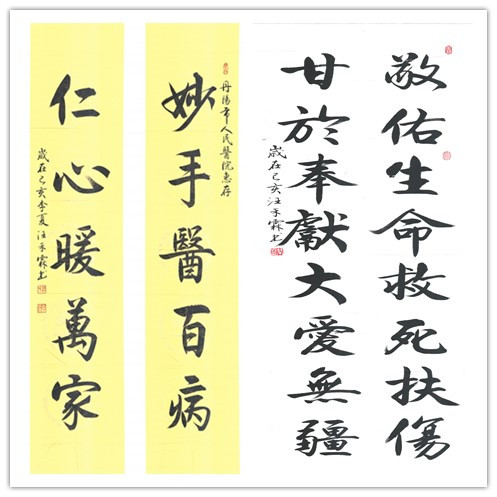 敬佑生命救死扶傷
甘於奉獻大愛無疆
歲在己亥汪禾霖书
丹陽市人民醫院惠存
妙手醫百病
仁心暖萬家
歲在己亥季夏汪禾霖书